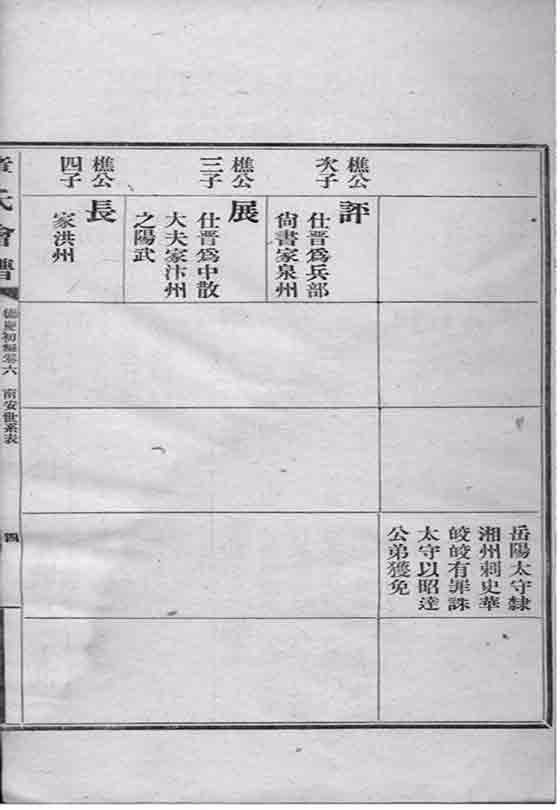 岳陽太守隸
湘州刺史華
皎皎有罪誅
太守以昭達
公弟獲免
樵公
次子
評
仕晋爲兵部
尙書家泉州
樵公
三子
展
仕晋爲中散
大夫家汴州
之陽武
樵公
四子
長
家洪州
氏會譜
德慶初編卷六
南安世系表
四